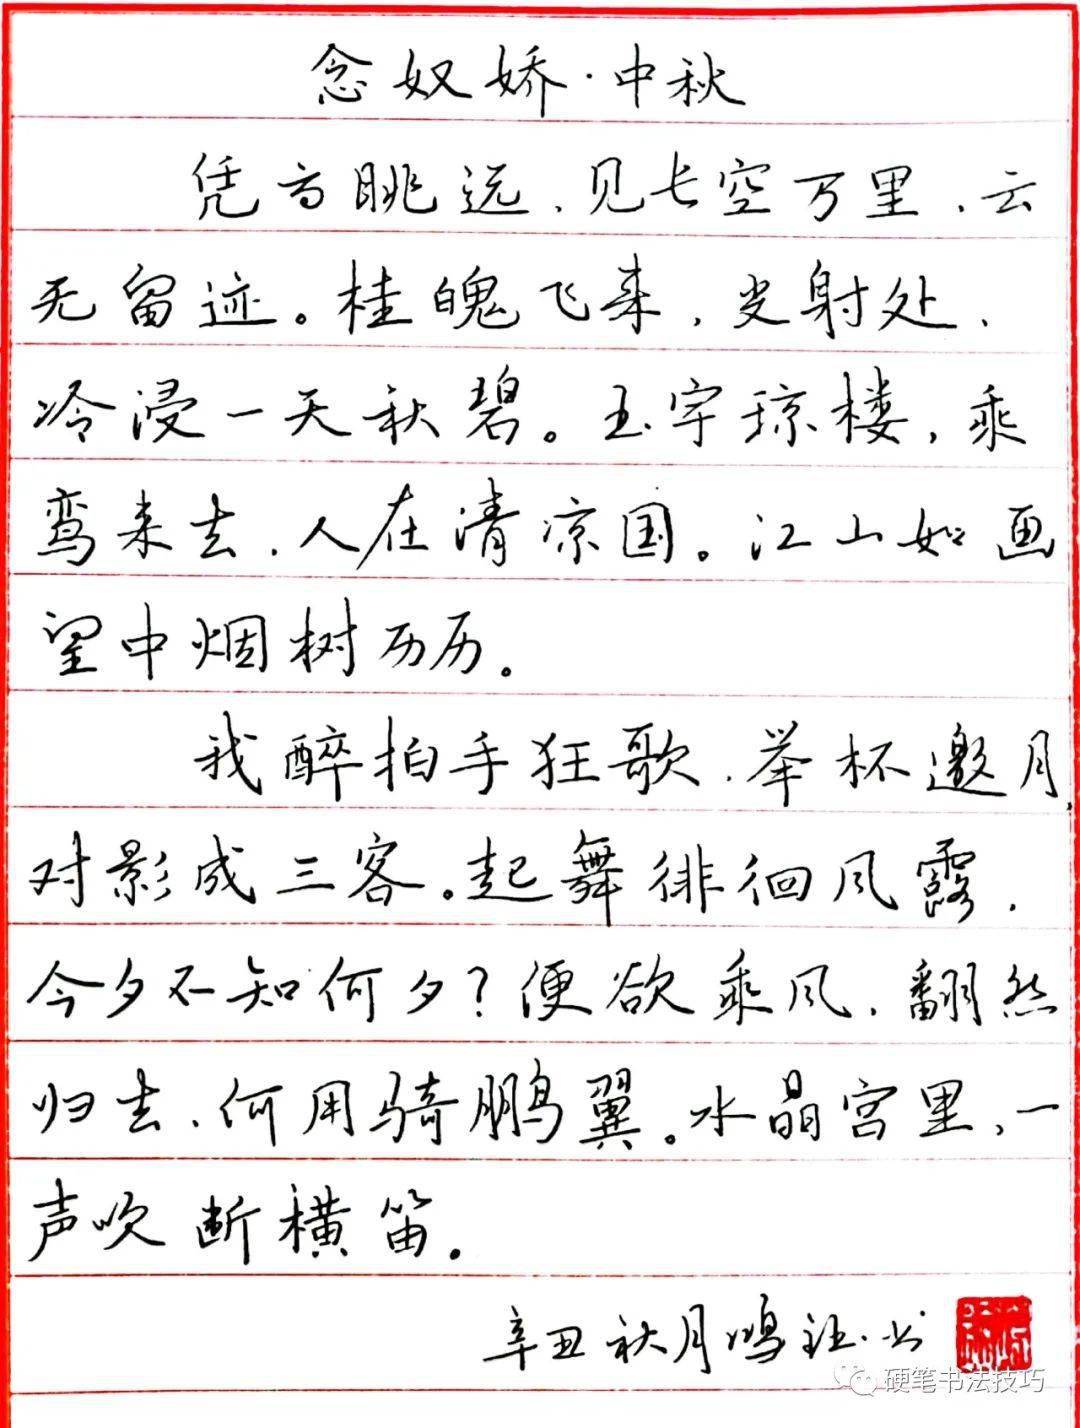 念奴娇·中秋
凭高眺远、见长空万里、云
无留迹。桂魄飞来,光射处、
冷浸一天秋碧。玉宇琼楼,乘
鸾来去、人在清凉国。江山如画
望中烟树历历。
我醉拍手狂歌、举杯邀月,
对影成三客。起舞徘徊风露、
今夕不知何夕?便欲乘风、翻然
归去、何用骑鹏翼。水晶宫里、一
声吹断横笛。
辛丑秋月鸿钰书
硬笔书法技巧